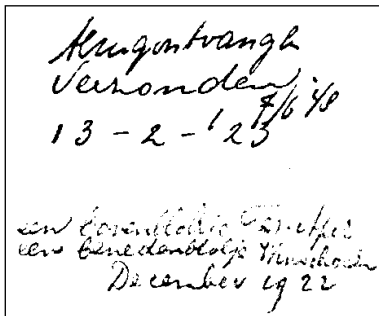 Terugontvangen
Verzonden
7/6 '48
13 - 2 - '23
een bovenblokje
een benedenblokje
December 1922